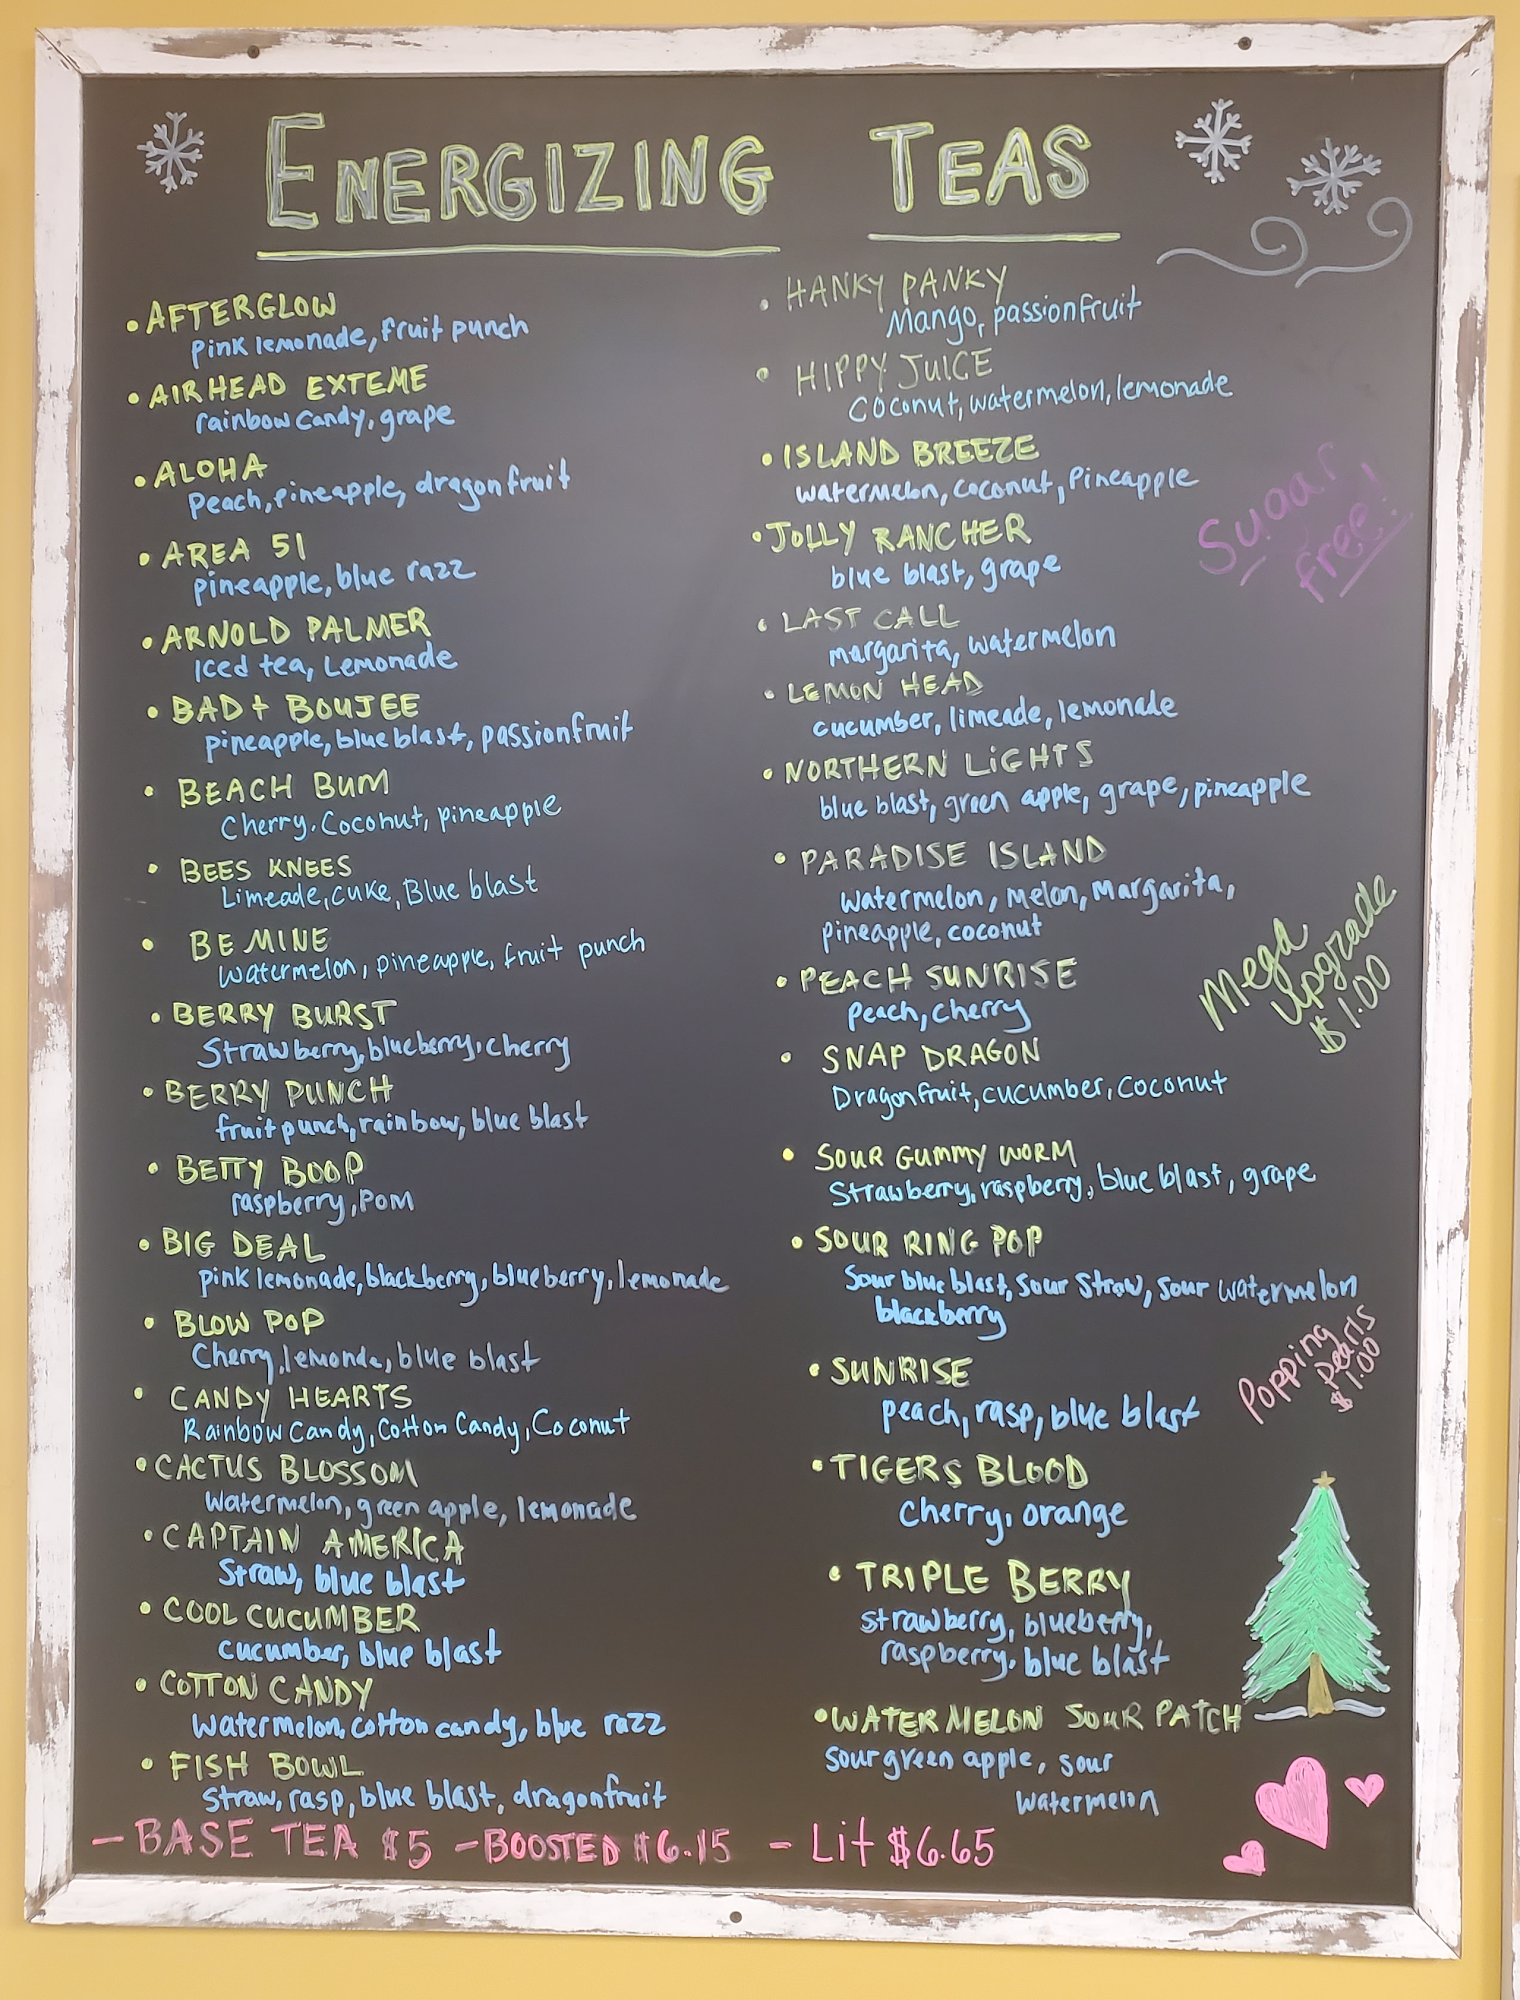 ENERGIZING TEAS
• AFTERGLOW
pink lemonade, fruit punch
• AIRHEAD EXTEME
rainbow candy, grape
• ALOHA
Peach, pineapple, dragonfruit
• AREA 51
pineapple, blue razz
• ARNOLD PALMER
Iced tea, Lemonade
• BAD + BOUJEE
pineapple, blue blast, passionfruit
• BEACH BUM
Cherry, Coconut, pineapple
• BEES KNEES
Limeade, cuke, Blue blast
• BE MINE
Watermelon, pineapple, fruit punch
• BERRY BURST
Strawberry, blueberry, cherry
• BERRY PUNCH
fruit punch, rainbow, blue blast
• BETTY BOOP
raspberry, POM
• BIG DEAL
pink lemonade, blackberry, blueberry, lemonade
• BLOW POP
Cherry, lemonde, blue blast
• CANDY HEARTS
Rainbow Candy, Cotton Candy, Coconut
• CACTUS BLOSSOM
Watermelon, green apple, lemonade
• CAPTAIN AMERICA
Straw, blue blast
• COOL CUCUMBER
cucumber, blue blast
• COTTON CANDY
Watermelon, cotton candy, blue razz
• FISH BOWL
Straw, rasp, blue blast, dragonfruit
• HANKY PANKY
Mango, passionfruit
• HIPPY JUICE
Coconut, watermelon, lemonade
• ISLAND BREEZE
watermelon, coconut, Pineapple
• JOLLY RANCHER
blue blast, grape
• LAST CALL
margarita, watermelon
• LEMON HEAD
cucumber, limeade, lemonade
• NORTHERN LIGHTS
blue blast, green apple, grape, pineapple
• PARADISE ISLAND
Watermelon, Melon, Margarita,
pineapple, coconut
• PEACH SUNRISE
Peach, cherry
• SNAP DRAGON
Dragonfruit, cucumber, coconut
• SOUR GUMMY WORM
Strawberry, raspberry, blue blast, grape
• SOUR RING POP
Sour blue blast, Sour Straw, Sour watermelon
blackberry
• SUNRISE
peach, rasp, blue blast
• TIGERS BLOOD
Cherry, orange
• TRIPLE BERRY
strawberry, blueberry,
raspberry, blue blast
• WATERMELON SOUR PATCH
Sour green apple, sour
watermelon
Sugar
free!
Mega
Upgrade
$1.00
Popping
Pearls
$1.00
- BASE TEA $5 - BOOSTED $6.15 - Lit $6.65